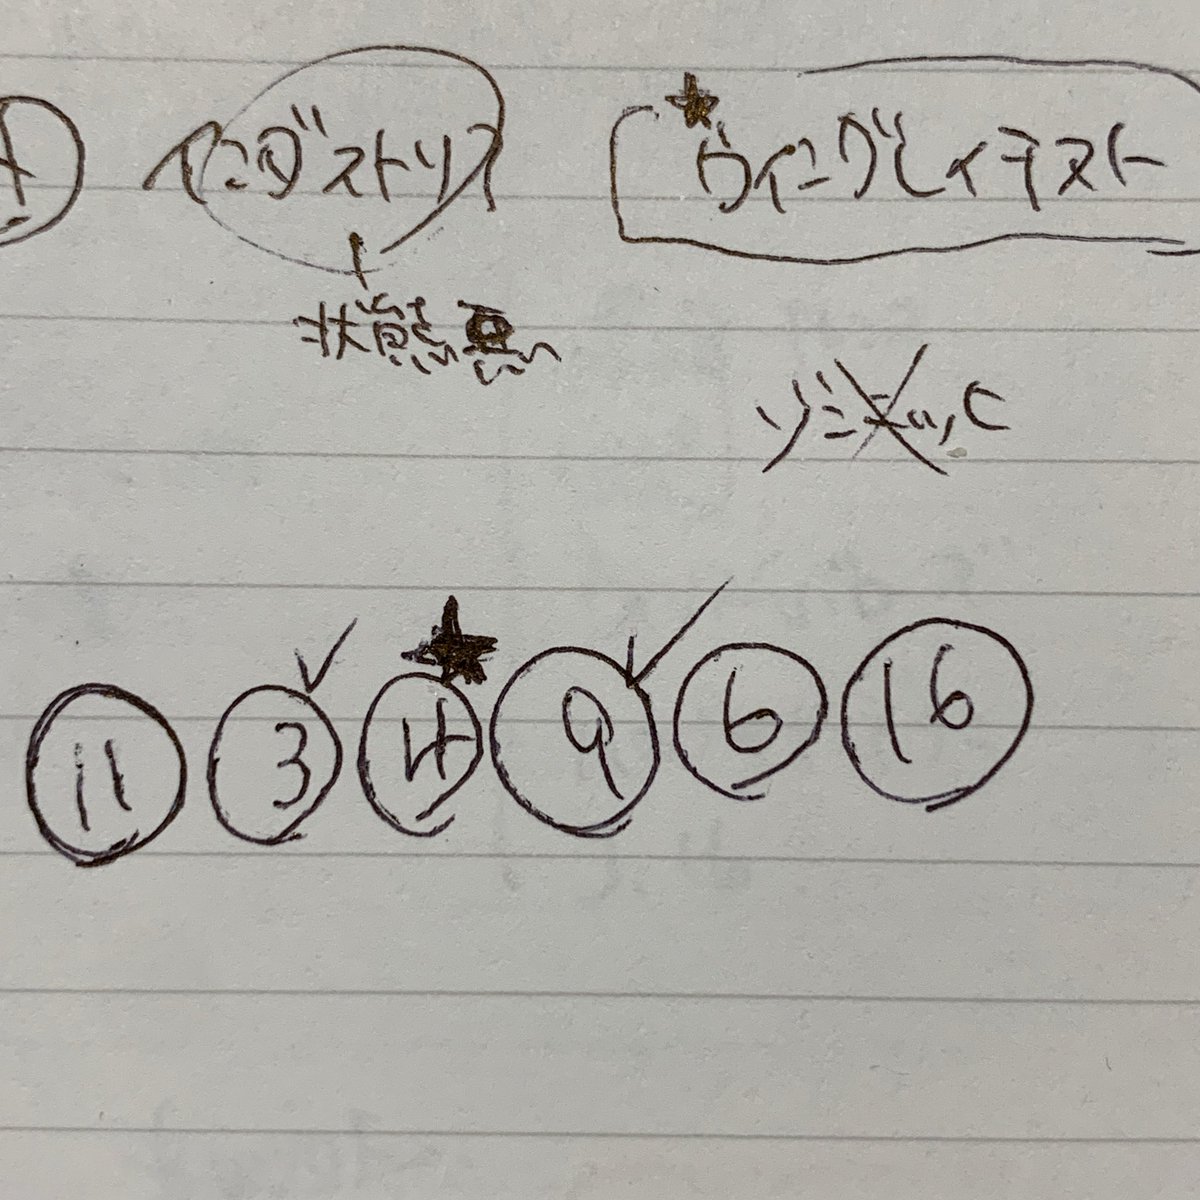 4 インダストリア ★ウイングレイテスト
状態悪い
ソニックC
11 3 4★ 9 6 16